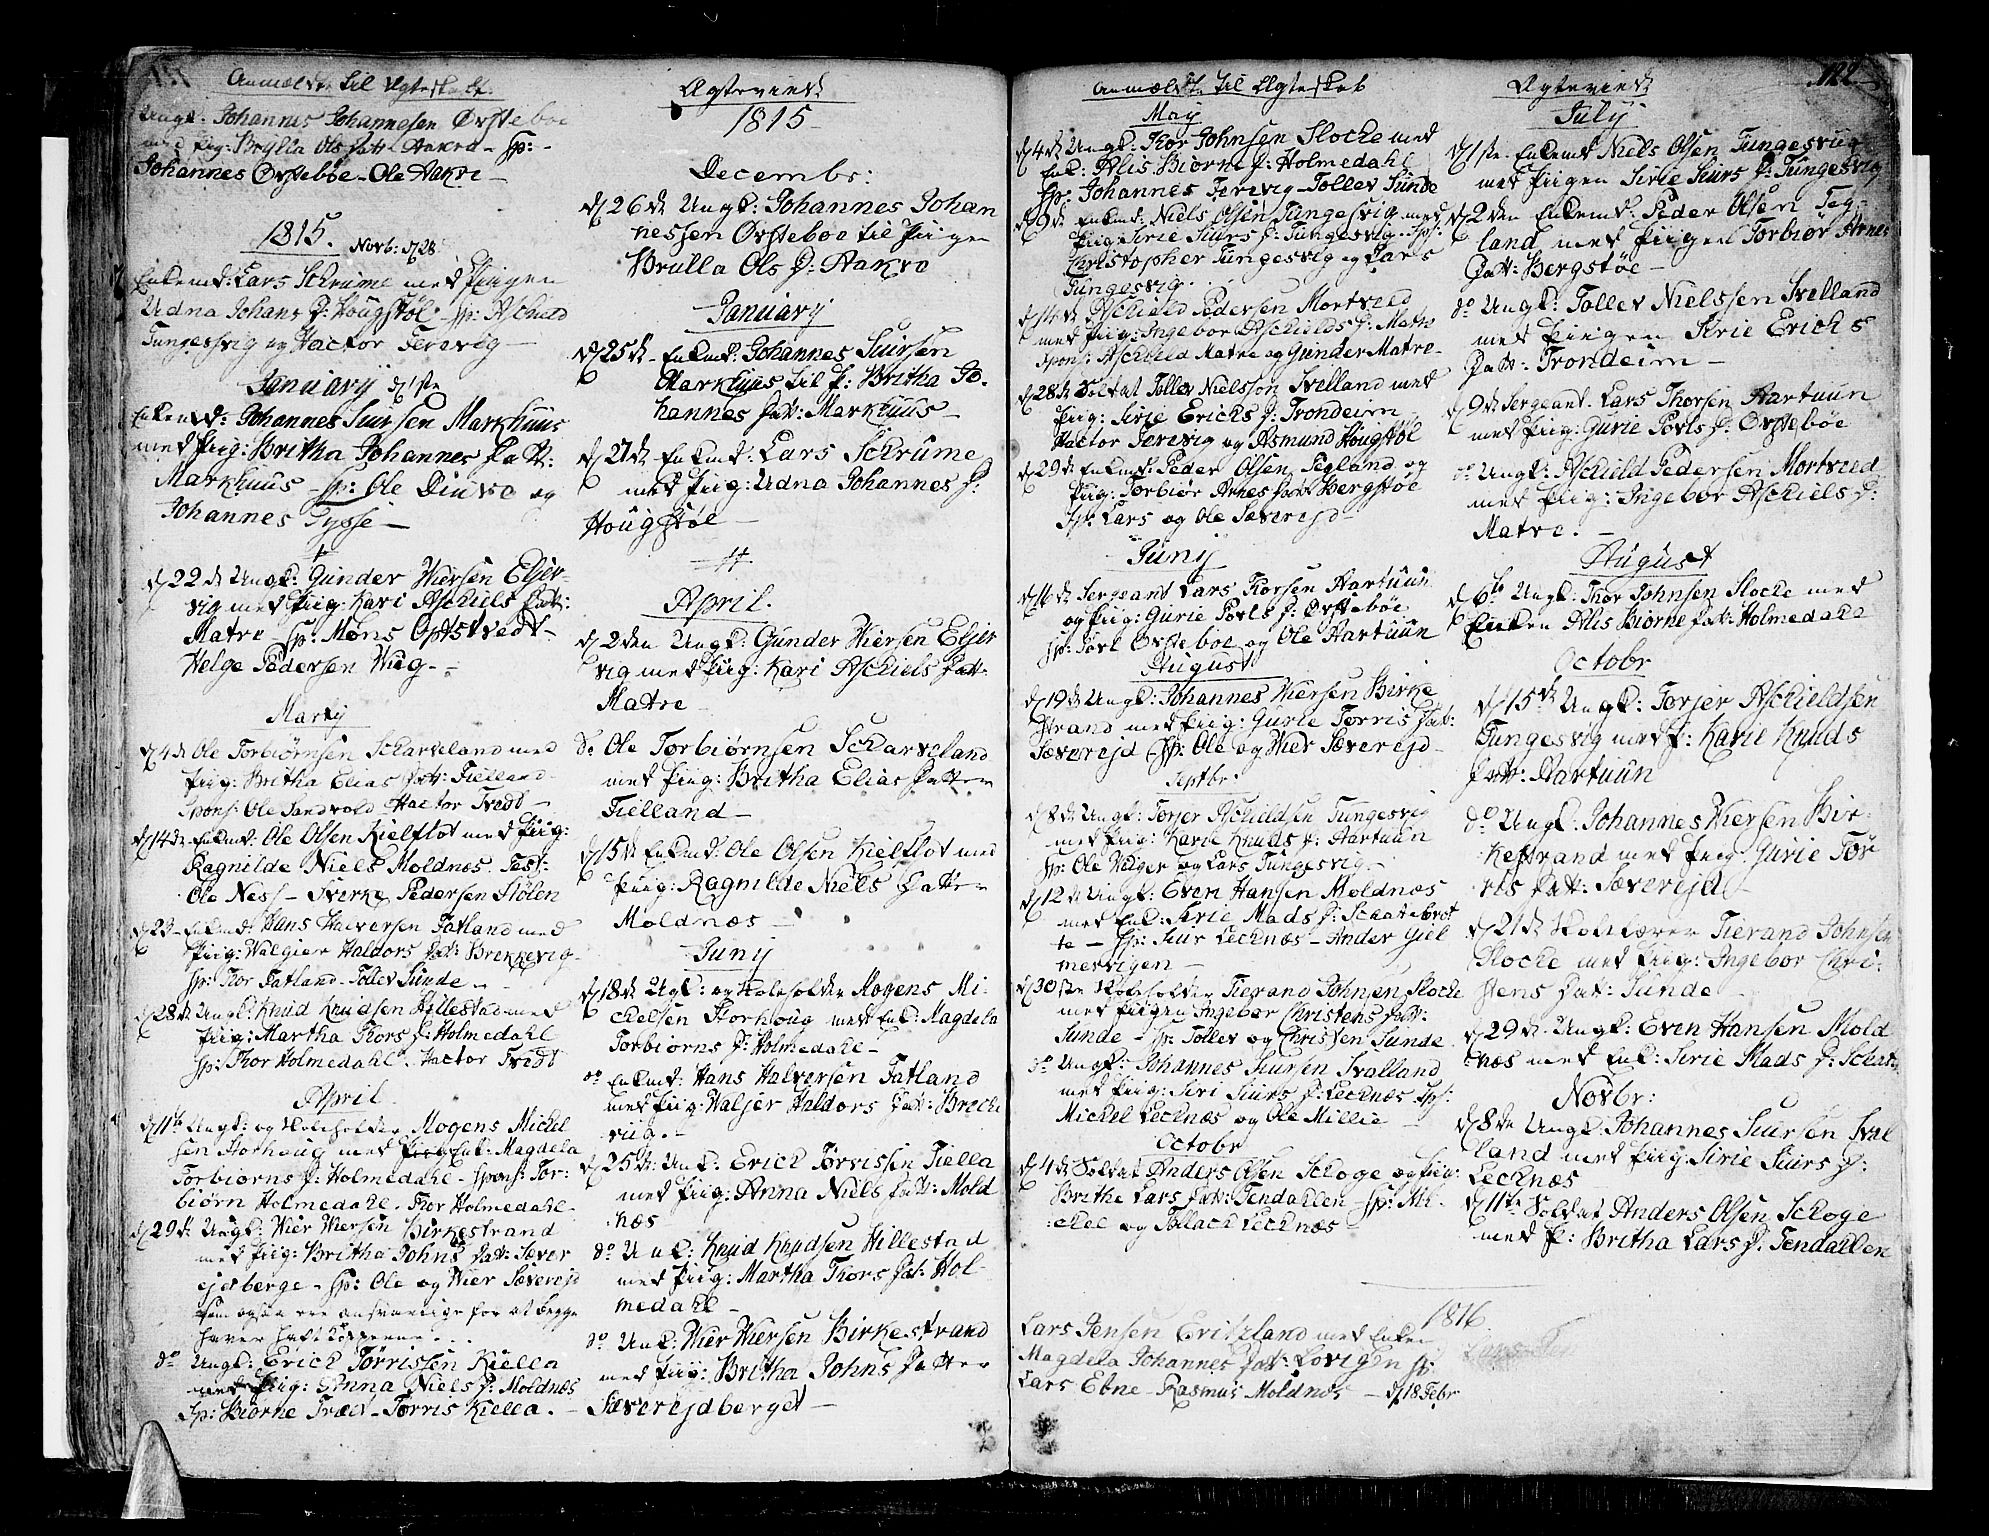 Anmældte til Ægteskab.
Ungk: Johannes Johannesen Ørstebøe
med Pig: Brylla Ols Datt: Aakre - Sp:
Johannes Ørstebøe - Ole Aakre -
1815. Novb: d 28
Enkemd: Lars Schrume med Piigen
Udna Johans D: Hougstøl - Sp: Aschield
Tungesvig og Hactor Terevig -
Januarÿ d 1ste
Enkemd: Johannes Siursen Markhuus
med Piig: Britha Johannes Datt:
Markhuus - Sp: Ole Diuve og
Johannes Tysse -
d 22de Ungk: Gunder Wiersen Eljer-
vig med Piig: Kari Aschiels Dat:
Matre - Sp: Mons Optstvedt -
Helge Pedersen Wiig -
Martÿ
d 4de Ole Torbiørnsen Scharveland med
Piig: Britha Elias Datt: Fielland
Spons: Ole Sandvold Hactor Tvedt -
d 14de Enkmd: Ole Olsen Kielflot med Piig:
Ragnilde Niels Moldnæs. Test:
Ole Ness - Sverke Pedersen Stølen
d 23 - Enkmd: Hans Halversen Fatland med
Piig: Walgier Haldors Dat: Brekkevig -
Sp: Thor Fatland - Tollev Sunde -
d 28de Ungk: Knud Knudsen Hillestad med
Piig: Martha Thors D: Holmedahl
Sp: Thor Holmedahl. Hactor Tvedt
April.
d 11te Ungk: og Skoleholder Mogens Michel
sen Storhoug med Enk: Magdela
Torbiørns D: Holmedahl - Spons: Tor:
biørn Holmedahl. Thor Holmedahl -
d 29de Ungk: Wier Wiersen Birkestrand
med Piig: Britha Johns Dat: Sæver
ejdberge - Sp: Ole og Wier Sæverejd
som ogsaa ere ansvarlige for at begge
haver haft Kopperne.
do Ungk: Erich Tørrissen Kiella
med Piig: Anna Niels D: Moldnæs
Sp: Biørne Træet - Tørris Kiella. -
Ægteviede
1815
Decembr:
d 26de Ungk: Johannes Johan
nessen Ørstebøe til Piigen
Brulla Ols D: Aakre
Januarÿ
d 25de - Enkmd: Johannes Siursen
Markhuus til P: Britha Jo-
hannes Dat: Markhuus -
d 27de Enkmd: Lars Schrume
med Piig: Udna Johannes D:
Hougstøl -
April.
d 2den Ungk: Gunder Wiersen Eljer
vig med Piig: Kari Aschiels Dat:
Matre -
do Ole Torbiørnsen Scharveland
med Piig: Britha Elias Datter
Fielland -
d 15de Enkmd: Ole Olsen Kielflot med
Piig: Ragnilde Niels Datter
Moldnæs -
Junÿ
d 18de Ugk: og Skoleholder Mogens Mi-
chelsen Storhoug med Enk: Magdela
Torbiørns D: Holmedahl -
do Enkmd: Hans Halversen Fatland
med Piig: Waljer Haldors Dat: Breche
viig. -
d 25de: Unk: Erich Tørrissen Fiella
med Piig: Anna Niels Datt: Mold
næs -
do Unk: Knud Knudsen Hillestad
med Piig: Martha Thors Dat: Hol-
medahl -
do Unk: Wier Wiersen Birkestrand
med Piig: Britha Johns Datter
Sæverejdberget -
Anmældte til Ægteskab
Maÿ
d 4de Ungk: Thor Johnsen Slocke med
Enk: Ahlis Biørne D: Holmedahl
Sp: Johannes Terevig - Tollev Sunde
d 9de Enkmd: Niels Olsen Tungesvig med
Piig: Sirie Siurs D: Tungesvig - Sp:
Christopher Tungesvig og Lars
Tungesvig.
Aschield Pedersen Mortveed
med Piig: Ingebor Aschields D: Matre
Spons: Aschield Matre og Gunder Matre -
d 28de Soldat Tollev Nielsson Svelland med
Piig: Sirje Erichs D: Trondeim
Hactor Terevig og Asmund Hougstøl
d 29de Enkmd: Peder Olsen Tegland og
Piig: Torbiør Arnes Datt Bergstøe
Sp: Lars og Ole Sæverejd
Junÿ
d 16de Sergeant Lars Thorsen Hartuun
og Piig: Gurie Povls D: Ørstebøe
Sp: Povl Ørstebøe og Ole Hartuun
August
d 19de Ungk: Johannes Wiersen Birke
strand med Piig: Gurie Tørris Dat:
Sæverejd Sp: Ole og Wier Sæverejd -
Septbr:
d 2de Ungk: Torjer Aschieldsen Tungesvig
med Piig: Karie Knuds D: Hartuun
Sp: Ole Walger og Lars Tungesvig -
d 12te Ungk: Even Hansen Moldnæs
med Enk: Sirie Mads D: Schatebrot
te - Sp: Siur Lecknæs - Ander Giel
mervigen -
d 30ste Skoleholder Tierand Johnsen Slocke
med Piigen Ingebor Christens Datt:
Sunde - Sp: Tollev og Christen Sunde
do Ungk: Johannes Siursen Svalland
med Piig: Siri Siurs D: Lecknæs Sp:
Michel Lecknæs og Ole Millie -
Octobr
d 4de Soldat Anders Olsen Schoge og Piig:
Brithe Lars Dat: Tendahlen - Sp: Mi-
chel og Tollach Lecknæs
1816
Lars Jensen Eritzland med Enken
Magdela Johannes Dat: Lovigen Sp:
Lars Ebne - Rasmus Moldnæs - d 18 Febr
Ægteviede
Julÿ
d 1ste. Enkemd Niels Olsen Tungesviig
med Piigen Sirie Siurs D: Tungesvig
d 2den Enkemd: Peder Olsen Teg-
land, med Piigen Torbiør Arnes
Datt: Bergstøe -
do Ungk: Tollev Nielssen Svelland
med Piigen Sirie Erichs
Datt: Trondeim -
d 9de Sergeant. Lars Thorsen Hartuun
med Piig: Gurie Povls D: Ørstebøe
do Ungk: Aschield Pedersen Mortveed
med Piig: Ingebor Aschiels D:
Matre. -
August
d 6te Ungk: Thor Johnsen Slocke med
Enken Ahlis Biørne Dat: Holmedahl
Octobr
d 15de Ungk: Torjer Aschieldsen
Tungesvig med P: Karie Knuds
Datt: Hartuun
do Ungk: Johannes Wiersen Bir-
kestrand med Piig: Gurie Tør
ris Datt: Sæverejd
d 21de Skolelærer Tierand Johnsen
Slocke med Piig: Ingebor Chri-
stens Dat: Sunde -
d 29de. Ungk: Even Hansen Mold
næs med Enk: Sirie Mads D: Schat
Novbr:
d 8de Ungk: Johannes Siursen Sval
land med Piig: Sirie Siurs D:
Lecknæs
d 11te Soldat Anders Olsen Schoge
med P: Britha Lars D: Tendahlen